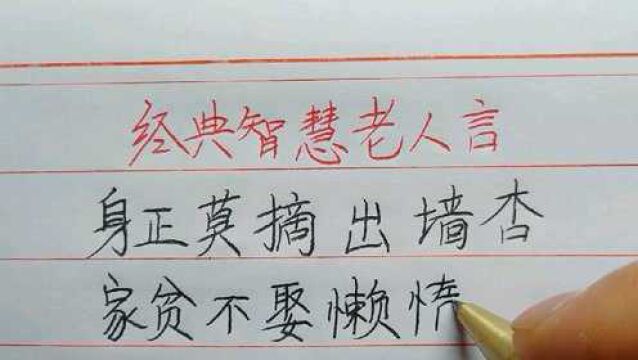 经典智慧老人言
身正莫摘出墙杏
家贫不娶懒惰